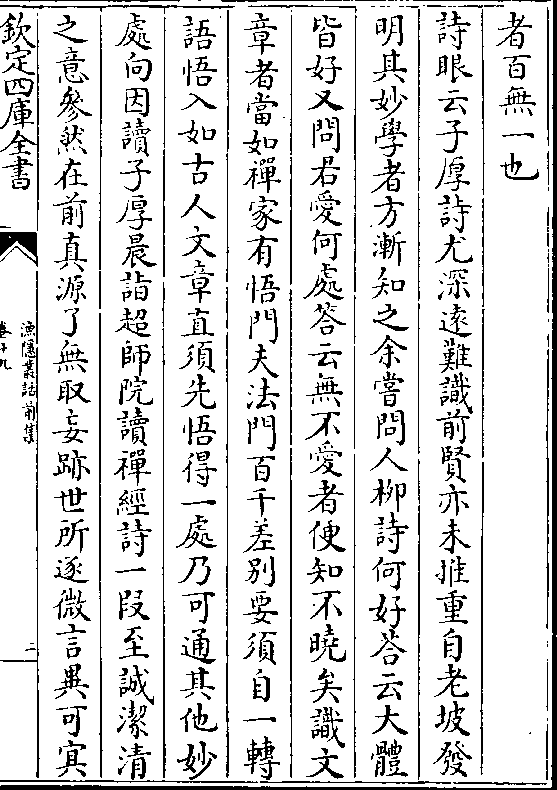 者百無一也
詩眼云子厚詩尤深逺難識前賢亦未推重自老坡發
明其妙學者方漸知之余嘗問人栁詩何好答云大體
皆好又問君愛何處答云無不愛者便知不曉矣識文
章者當如禪家有悟門夫法門百千差别要須自一轉
語悟入如古人文章直須先悟得一處乃可通其他妙
處向因讀子厚晨詣超師院讀禪經詩一段至誠潔清
之意參然在前真源了無取妄跡世所逐微言異可㝠
欽定四庫全書
漁隱叢話前集
卷十九
二